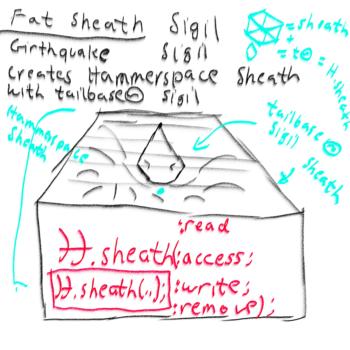 Fat sheath Sigil
Girthquake Sigil
Creates Hammerspace Sheath
with tailbase Sigil
= sheath
+
= H. sheath
Hammerspace
Sheath
tailbase
Sigil
Sheath
:read
H.sheath(:access;
H.sheath(..); :write;
:remove);